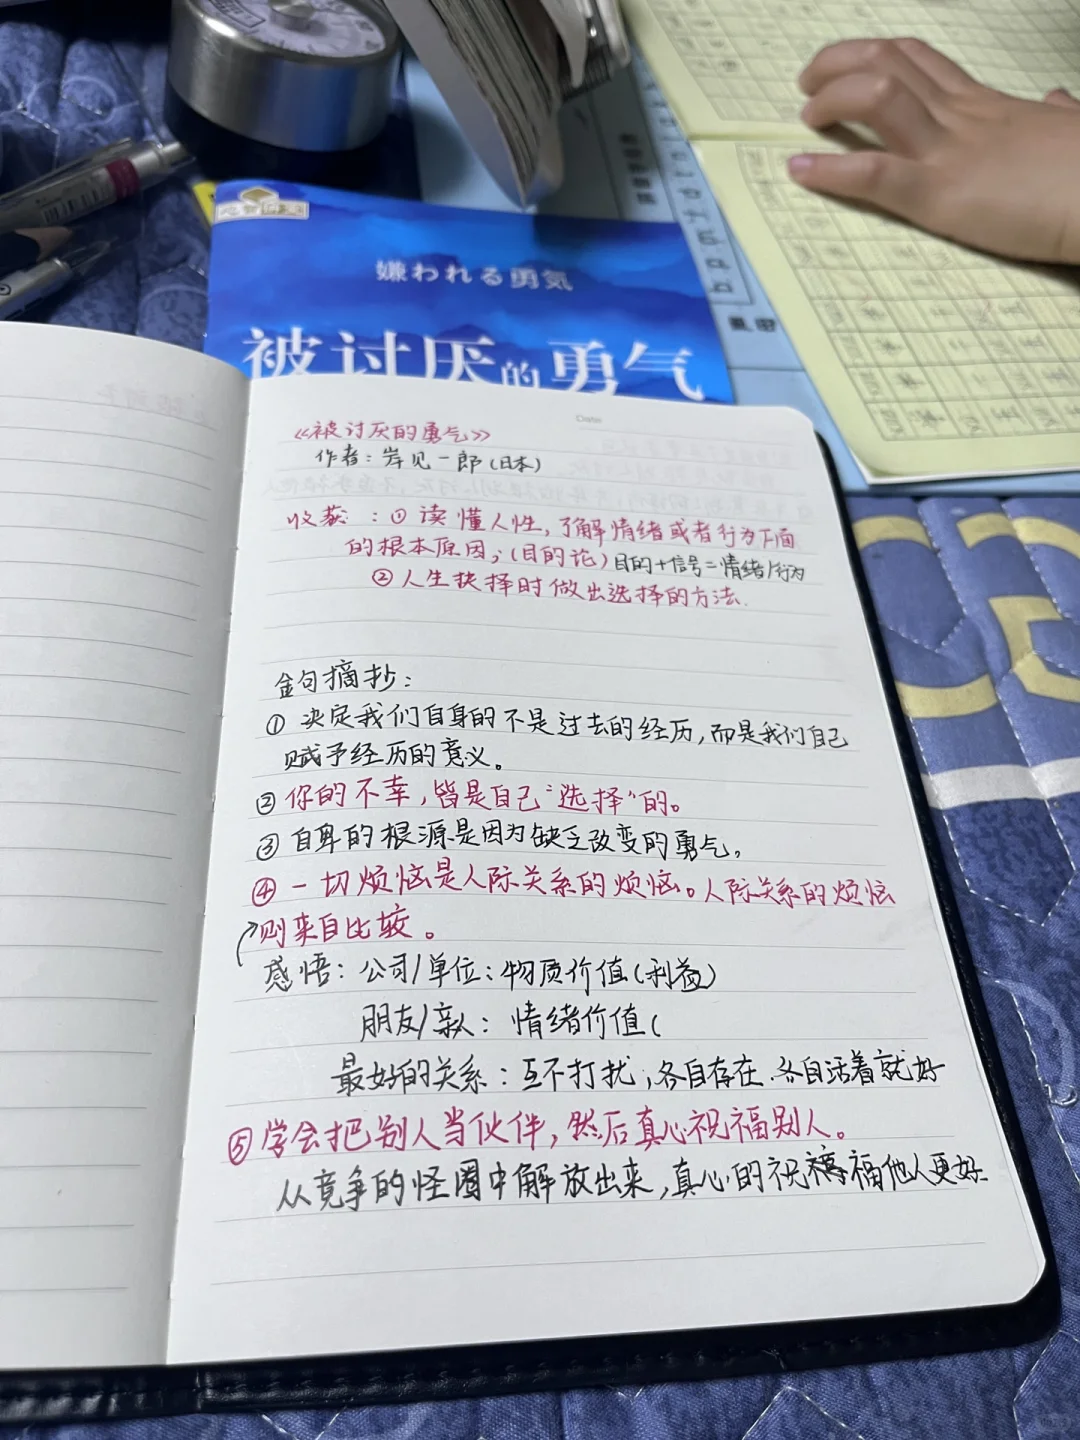 嫌われる勇気
被讨厌的勇气
Date
《被讨厌的勇气》
作者：岸见一郎(日本)
收获：① 读懂人性，了解情绪或者行为下面
的根本原因；(目的论) 目的+信号=情绪/行为
② 人生抉择时做出选择的方法.
金句摘抄：
① 决定我们自身的不是过去的经历，而是我们自己
赋予经历的意义。
② 你的不幸，皆是自己“选择”的。
③ 自卑的根源是因为缺乏改变的勇气，
④ 一切烦恼是人际关系的烦恼。人际关系的烦恼
则来自比较。
感悟：公司/单位：物质价值(利益)
朋友/亲人：情绪价值(
最好的关系：互不打扰，各自存在.各自活着就好
⑤ 学会把别人当伙伴，然后真心祝福别人。
从竞争的怪圈中解放出来，真心的祝福他人更好